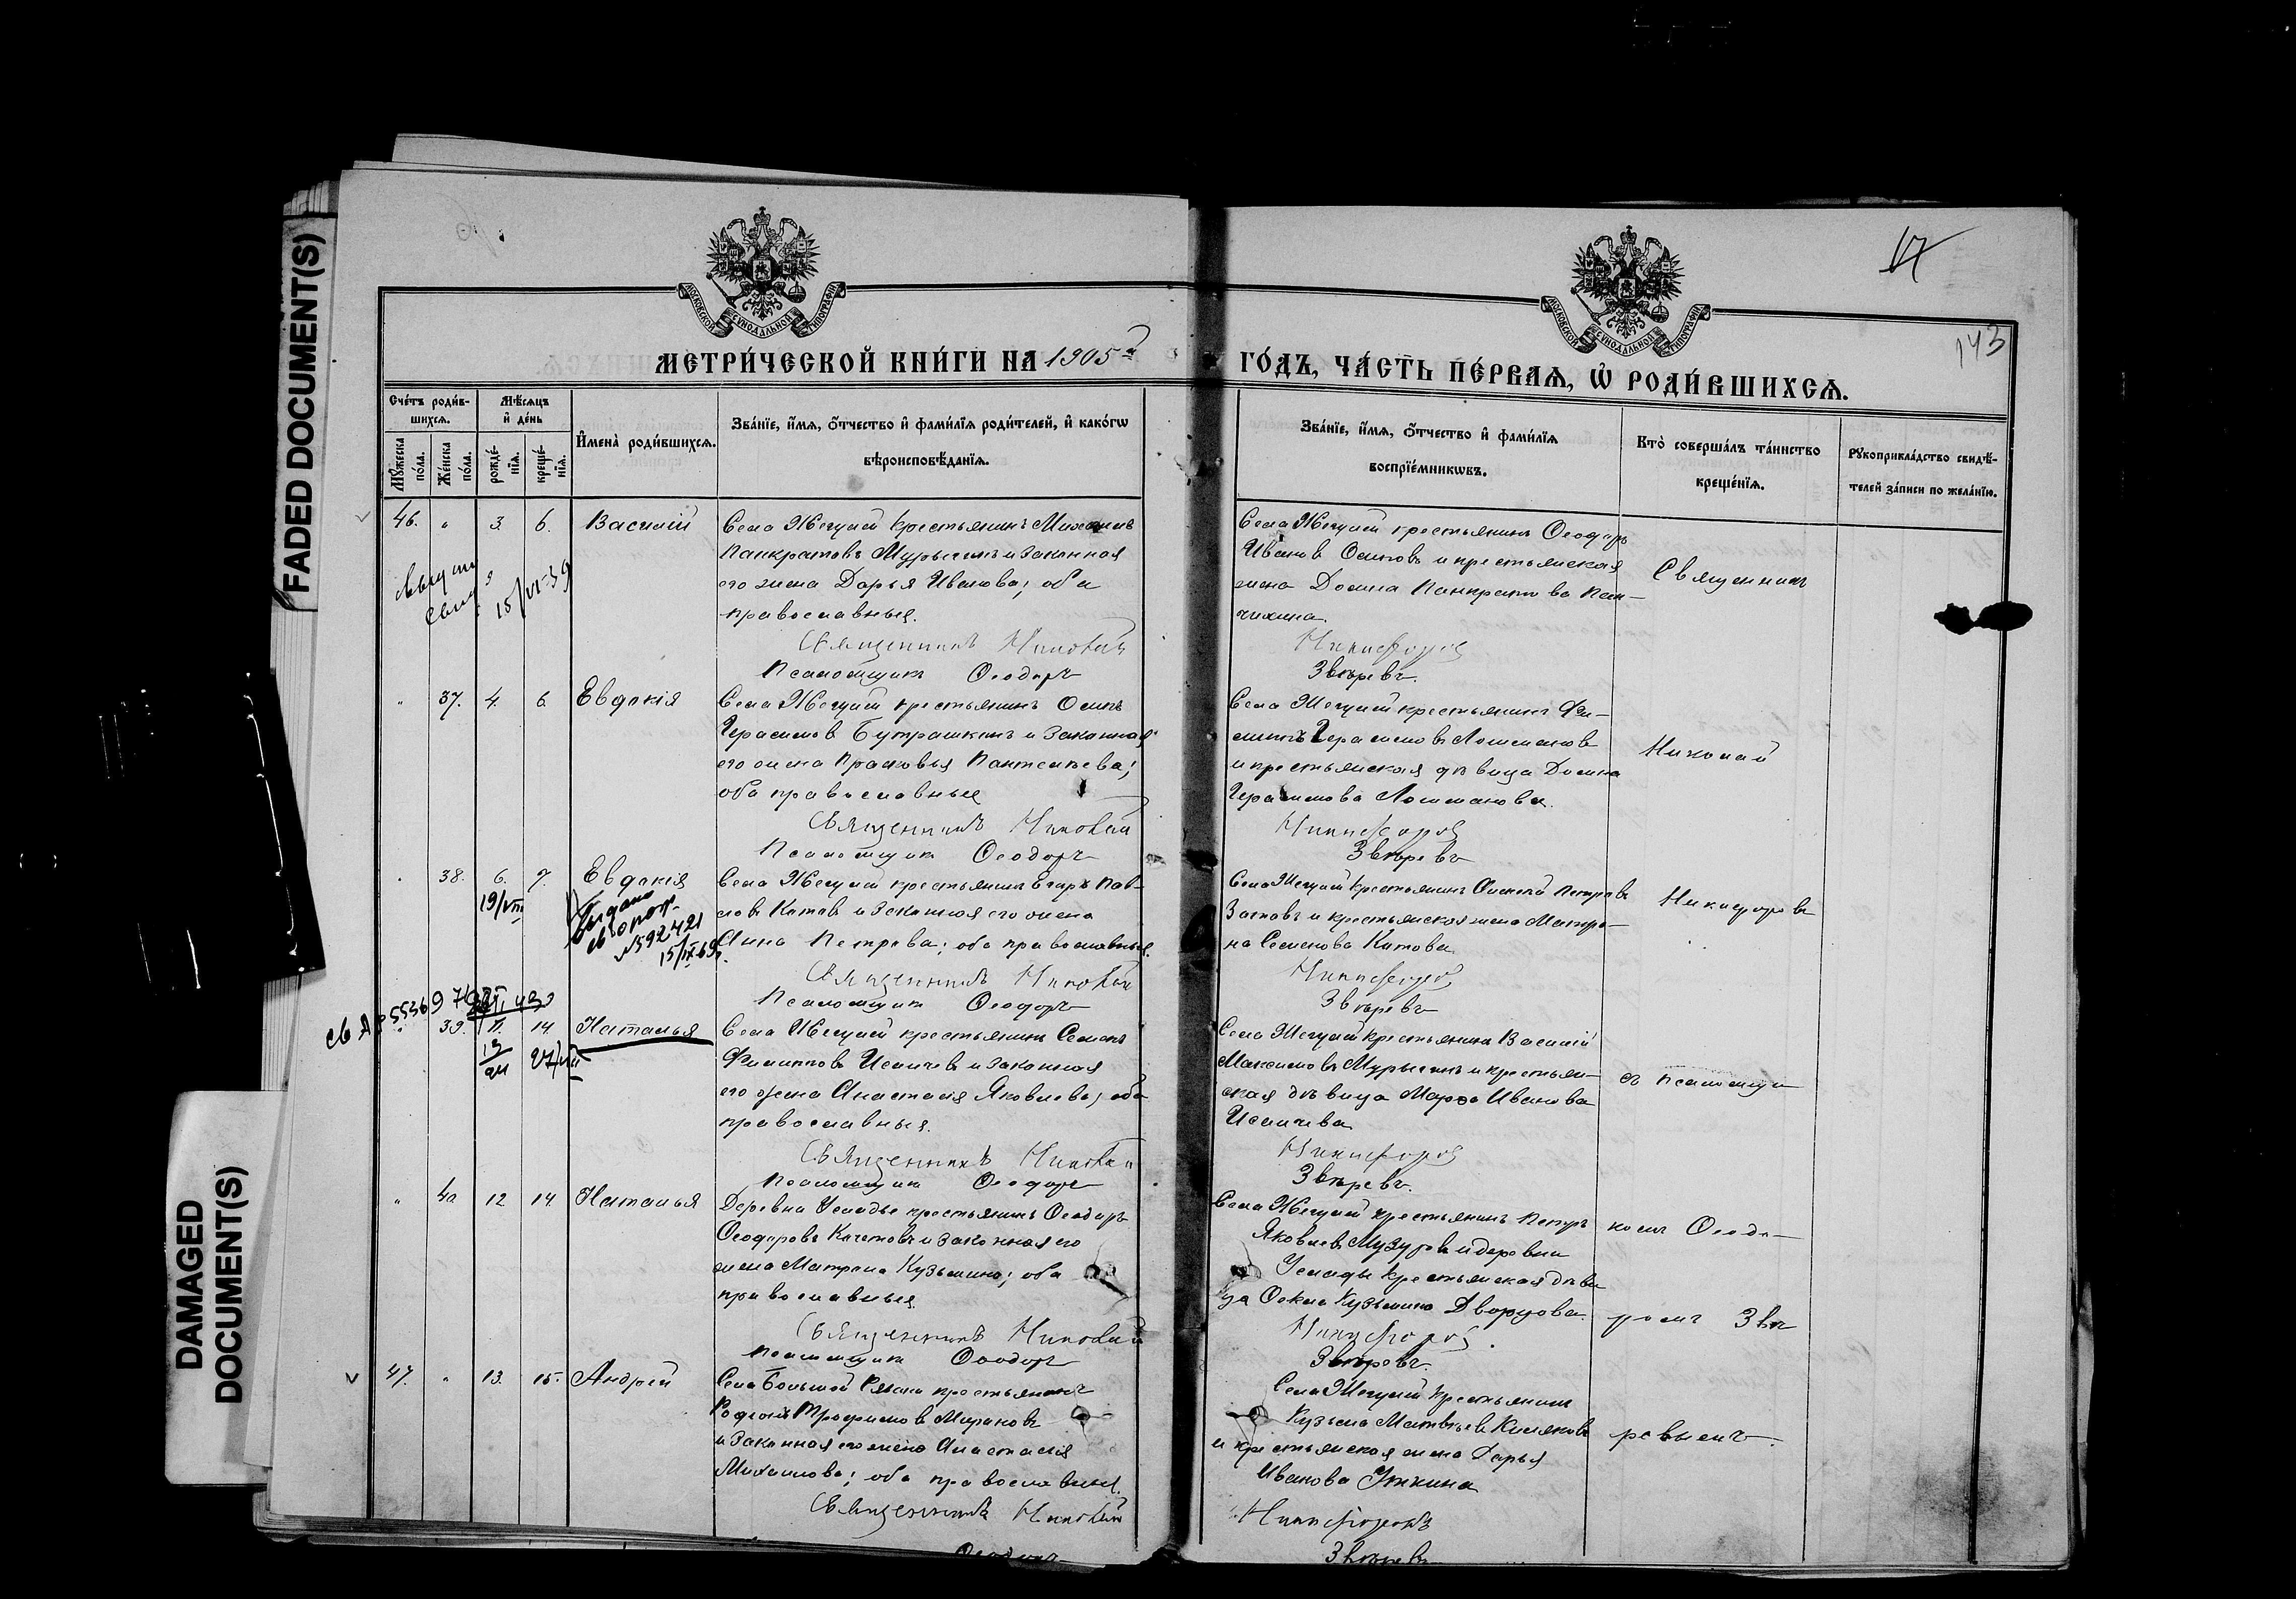 FADED DOCUMENT(S)
DAMAGED
DOCUMENT(S)
17
143
МОСКОВСКОЙ СѴНОДАЛЬНОЙ ТИПОГРАФІИ
МОСКОВСКОЙ СѴНОДАЛЬНОЙ ТИПОГРАФІИ
МЕТРИ́ЧЕСКОЙ КНИ́ГИ НА 1905й
ГО́ДЪ, ЧА́СТЬ ПЕ́РВАѦ, Ѡ҆ РОДИ́ВШИХСѦ.
Сче́тъ роди́в-
шихсѧ.
Мꙋ́жеска
по́ла.
Же́нска
по́ла.
Мѣ́сѧцъ
и҆ де́нь
рожде́-
нїѧ.
креще́-
нїѧ.
И҆мена̀ роди́вшихсѧ.
Зва́нїе, и҆́мѧ, ѻ҆́тчество и҆ фами́лїѧ роди́телей, и҆ како́гѡ
вѣроисповѣ́данїѧ.
Зва́нїе, и҆́мѧ, ѻ҆́тчество и҆ фами́лїѧ
воспрїе́мникѡвъ.
Кто̀ соверша́лъ та́инство
креще́нїѧ.
Рꙋкоприкла́дство свидѣ́-
телей за́писи по жела́нїю.
46. " 3. 6. Василій
15/VI-39
Села Жегулей крестьянинъ Михаилъ
Панкратовъ Мурыгинъ и законная
его жена Дарья Иванова; оба
православные.
Священникъ Николай
Псаломщикъ Ѳеодоръ
Села Жегулей крестьянинъ Ѳеодоръ
Ивановъ Осиповъ и крестьянская
жена Домна Панкратова
Никифоровъ
Звѣревъ.
Священникъ
" 37. 4. 6. Евдокія
Села Жегулей крестьянинъ Осипъ
Герасимовъ Бутрашкинъ и законная
его жена Прасковья Пантелѣева;
оба православные
Священникъ Николай
Псаломщикъ Ѳеодоръ
Села Жегулей крестьянинъ Фи-
липпъ Герасимовъ Лошмановъ
и крестьянская дѣвица Домна
Герасимова Лошманова.
Никифоровъ
Звѣревъ
Николай
" 38. 6. 7. Евдокія
19/VIII
Выдано
№592421
15/IX 69г.
Села Жегулей крестьянинъ Егоръ Пав-
ловъ Котовъ и законная его жена
Анна Петрова; оба православные.
Священникъ Николай
Псаломщикъ Ѳеодоръ
Села Жегулей крестьянинъ Алексѣй Петровъ
и крестьянская жена Матре-
на Семенова Котова.
Никифоровъ
Звѣревъ
Никифоровъ
" 39. 11. 14. Наталья
27/VIII
Села Жегулей крестьянинъ Семенъ
Филипповъ Исаичевъ и законная
его жена Анастасія Яковлева; оба
православные.
Священникъ Николай
Псаломщикъ Ѳеодоръ
Села Жегулей крестьянинъ Василій
Максимовъ Мурыгинъ и крестьян-
ская дѣвица Марѳа Иванова
Исаичева
Никифоровъ
Звѣревъ.
съ псаломщи-
" 40 12 14 Наталья
Деревни Усладъ крестьянинъ Ѳеодоръ
Ѳеодоровъ Кочетовъ и законная его
жена Матрена Кузьмина; оба
православные
Священникъ Николай
Псаломщикъ Ѳеодоръ
Села Жегулей крестьянинъ Петръ
Яковлевъ Музуровъ и деревни
Услады крестьянская дѣви-
ца Ѳекла Кузьмина Дворцова.
Никифоровъ.
Звѣревъ.
комъ Ѳеодо-
ромъ Звѣ-
47. " 13. 15. Андрей
Села Большой Рязани крестьянинъ
Родіонъ Трофимовъ Мироновъ
и законная его жена Анастасія
Михаилова; оба православные.
Священникъ Николай
Ѳеодоръ
Села Жегулей крестьянинъ
Кузьма Матвѣевъ Кисляковъ
и крестьянская жена Дарья
Иванова Уткина
Никифоровъ
Звѣревъ
ревымъ.